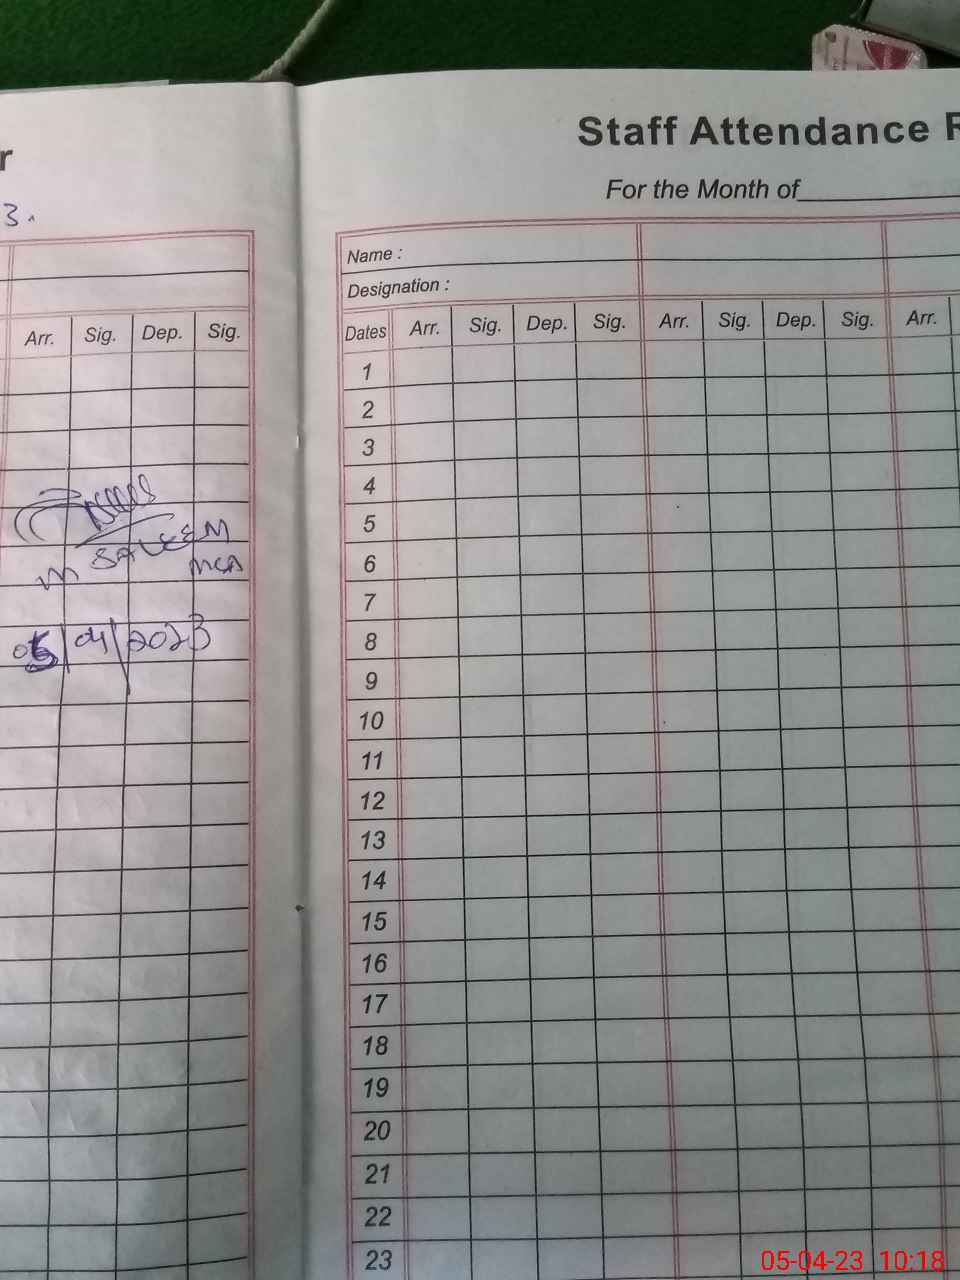 r
3.
Arr. Sig. Dep. Sig.
M SALEEM
MCA
05/04/2023
Staff Attendance R
For the Month of
Name :
Designation :
Dates Arr. Sig. Dep. Sig. Arr. Sig. Dep. Sig. Arr.
1
2
3
4
5
6
7
8
9
10
11
12
13
14
15
16
17
18
19
20
21
22
23
05-04-23 10:18